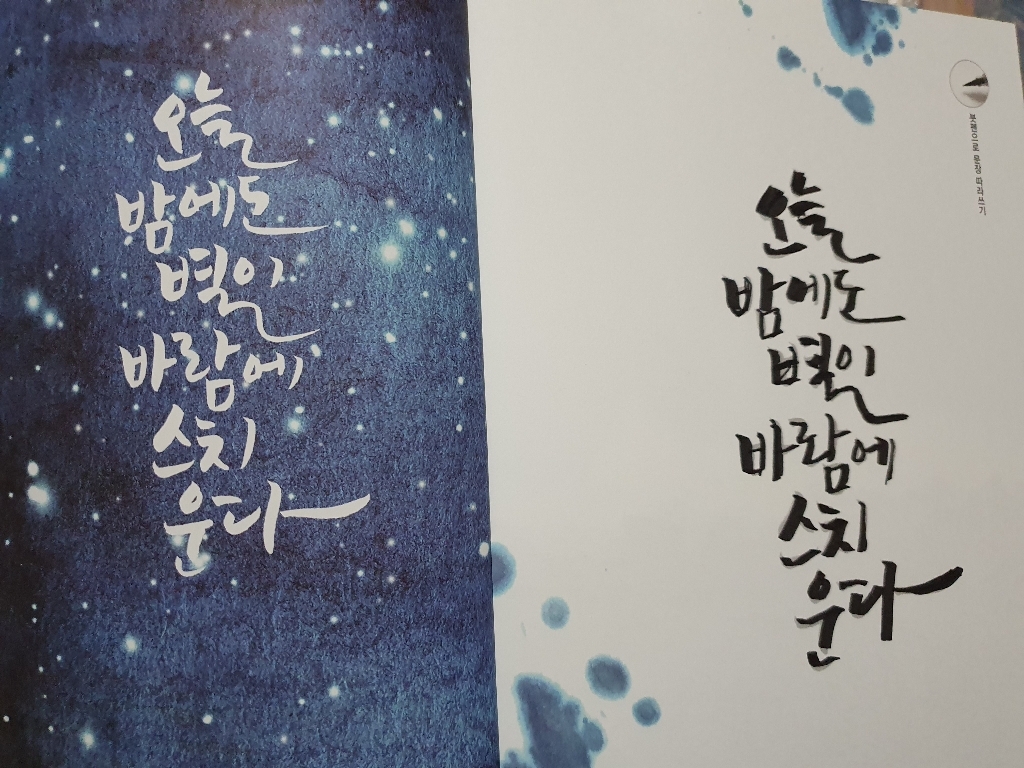 오늘
밤에도
별이
바람에
스치
운다
오늘
밤에도
별이
바람에
스치
운다
붓펜으로 문장 따라쓰기